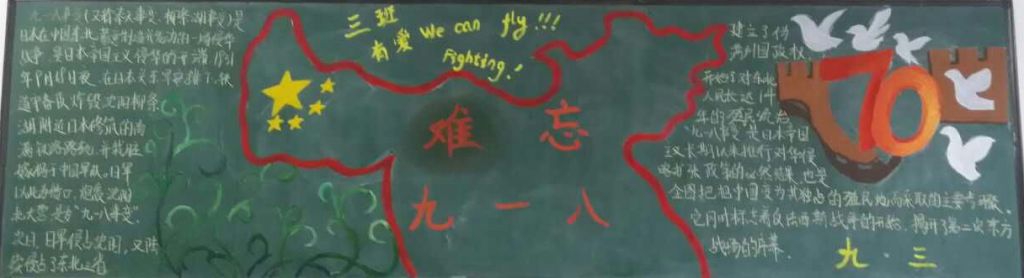 九一八事变(又称奉天事变、柳条湖事变)是
日本在中国东北蓄意制造并发动的一场侵华
战争,是日本帝国主义侵华的开端。1931
年9月18日夜,在日本关东军安排下,铁
道守备队炸毁沈阳柳条
湖附近日本修筑的南
满铁路路轨,并栽赃
嫁祸于中国军队。日军
以此为借口,炮轰沈阳
北大营,是为"九一八事变"。
次日,日军侵占沈阳,又陆
续侵占了东北三省
三班
有爱 We can fly!!!
Fighting!
难忘
九一八
建立了伪
满洲国政权,
开始了对东北
人民长达14
年的殖民统治
"九·八事变"是日本帝国
主义长期以来推行对华侵
略扩张政策的必然结果,也是
企图把祖中国变为其独占的殖民地而采取的主要步骤。
它同时标志着反法西斯战争的开始,揭开了第二次东方
战场的序幕。
70
九·三